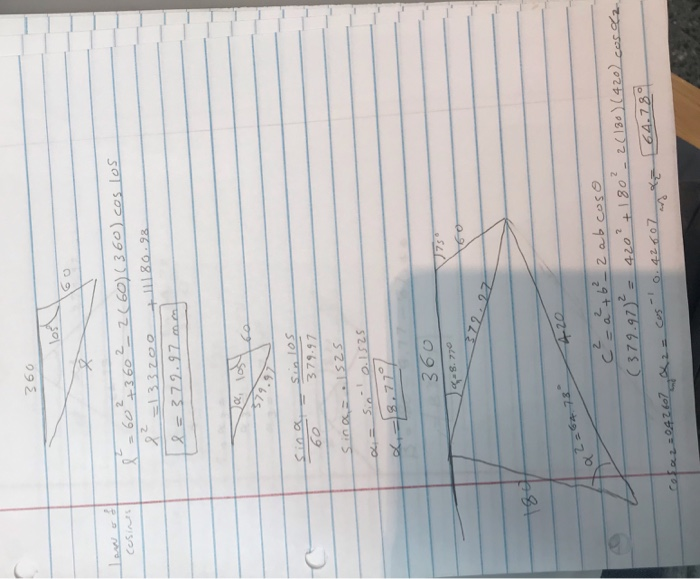 360
105
60
l
law of
cosines
l² = 60² + 360² - 2(60)(360) cos 105
l² = 133200 + 11180.98
l = 379.97 mm
α₁ 105 60
379.97
sin α₁ / 60 = sin 105 / 379.97
sin α₁ = .1525
α₁ = sin⁻¹ 0.1525
α₁ = 8.77°
360
75°
60
α₁ = 8.77°
379.97
180
420
α2 = 64.78°
c² = a² + b² - 2ab cos θ
(379.97)² = 420² + 180² - 2(180)(420) cos α2
cos α2 = 0.42607 ⇒ α2 = cos⁻¹ 0.42607 ⇒ α2 = 64.78°